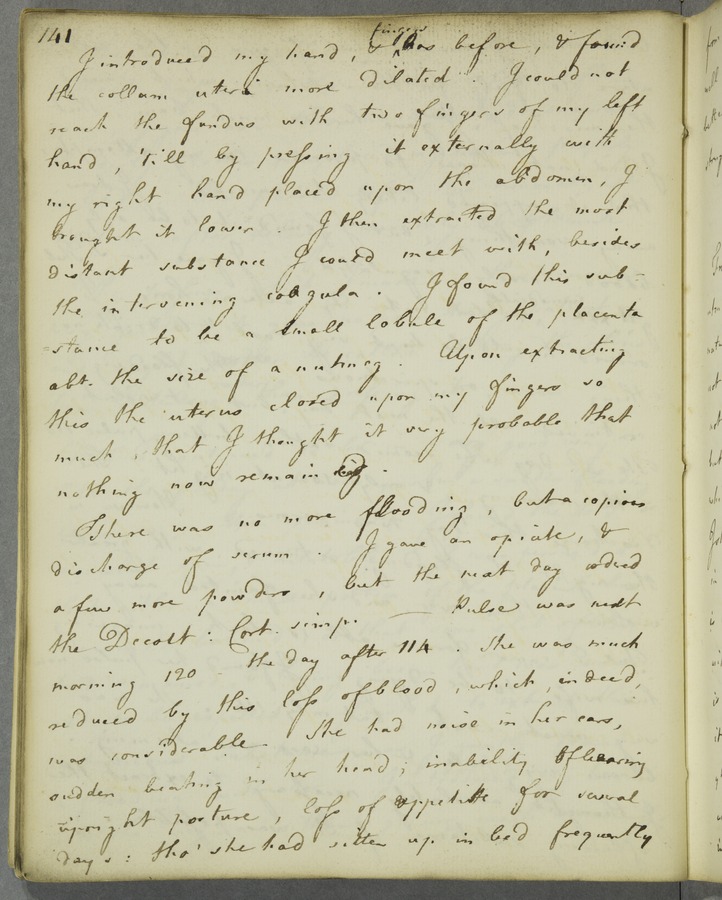 141
I introduced my hand, & fingers as before, & found
the collum uteri more dilated. I could not
reach the fundus with two fingers of my left
hand, 'till by pressing it externally with
my right hand placed upon the abdomen, I
brought it lower. I then extracted the most
distant substance I could meet with, besides
the intervening coagula. I found this sub-
=stance to be a small lobule of the placenta
abt. the size of a nutmeg. Upon extracting
this the uterus closed upon my fingers so
much, that I thought it very probable that
nothing now remained.
There was no more flooding, but a copious
discharge of serum. I gave an opiate, &
a few more powders, but the next day added
the Decoct: Cort. simp. — Pulse was next
morning 120 the day after 114. She was much
reduced by this loss of blood, which, indeed,
was considerable. She had noise in her ears,
sudden beating in her head; inability of bearing
upright posture, loss of appetite for several
days: tho' she had sitten up in bed frequently